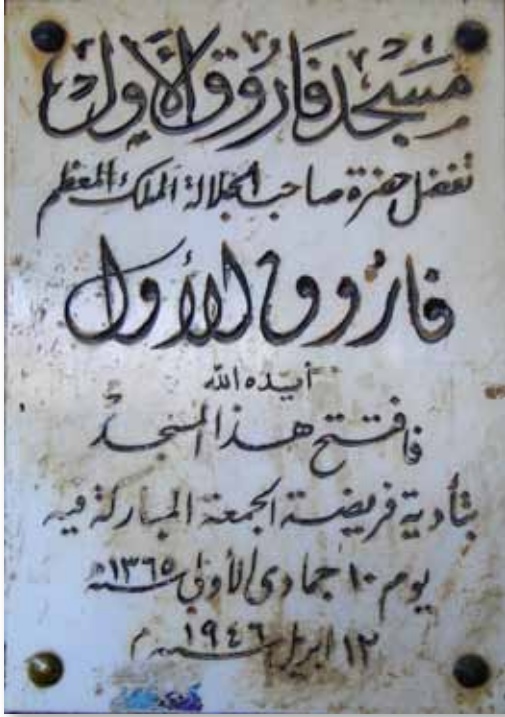 مسجد فاروق الأول
تفضل حضرة صاحب الجلالة الملك المعظم
فاروق الأول
أيده الله
فافتتح هذا المسجد
بتأدية فريضة الجمعة المباركة فيه
يوم ١٠ جمادى الأولى سنة ١٣٦٥ه
١٢ ابريل سنة ١٩٤٦ م